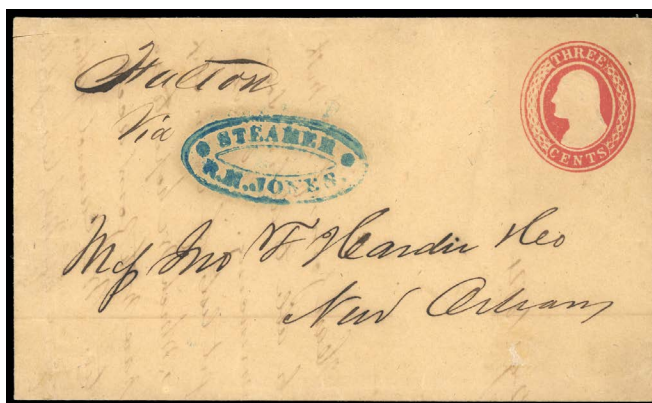 Fulton
Via
STEAMER
R.M. JONES.
THREE
CENTS
Mess Jno F Hardie & Co
New Orleans